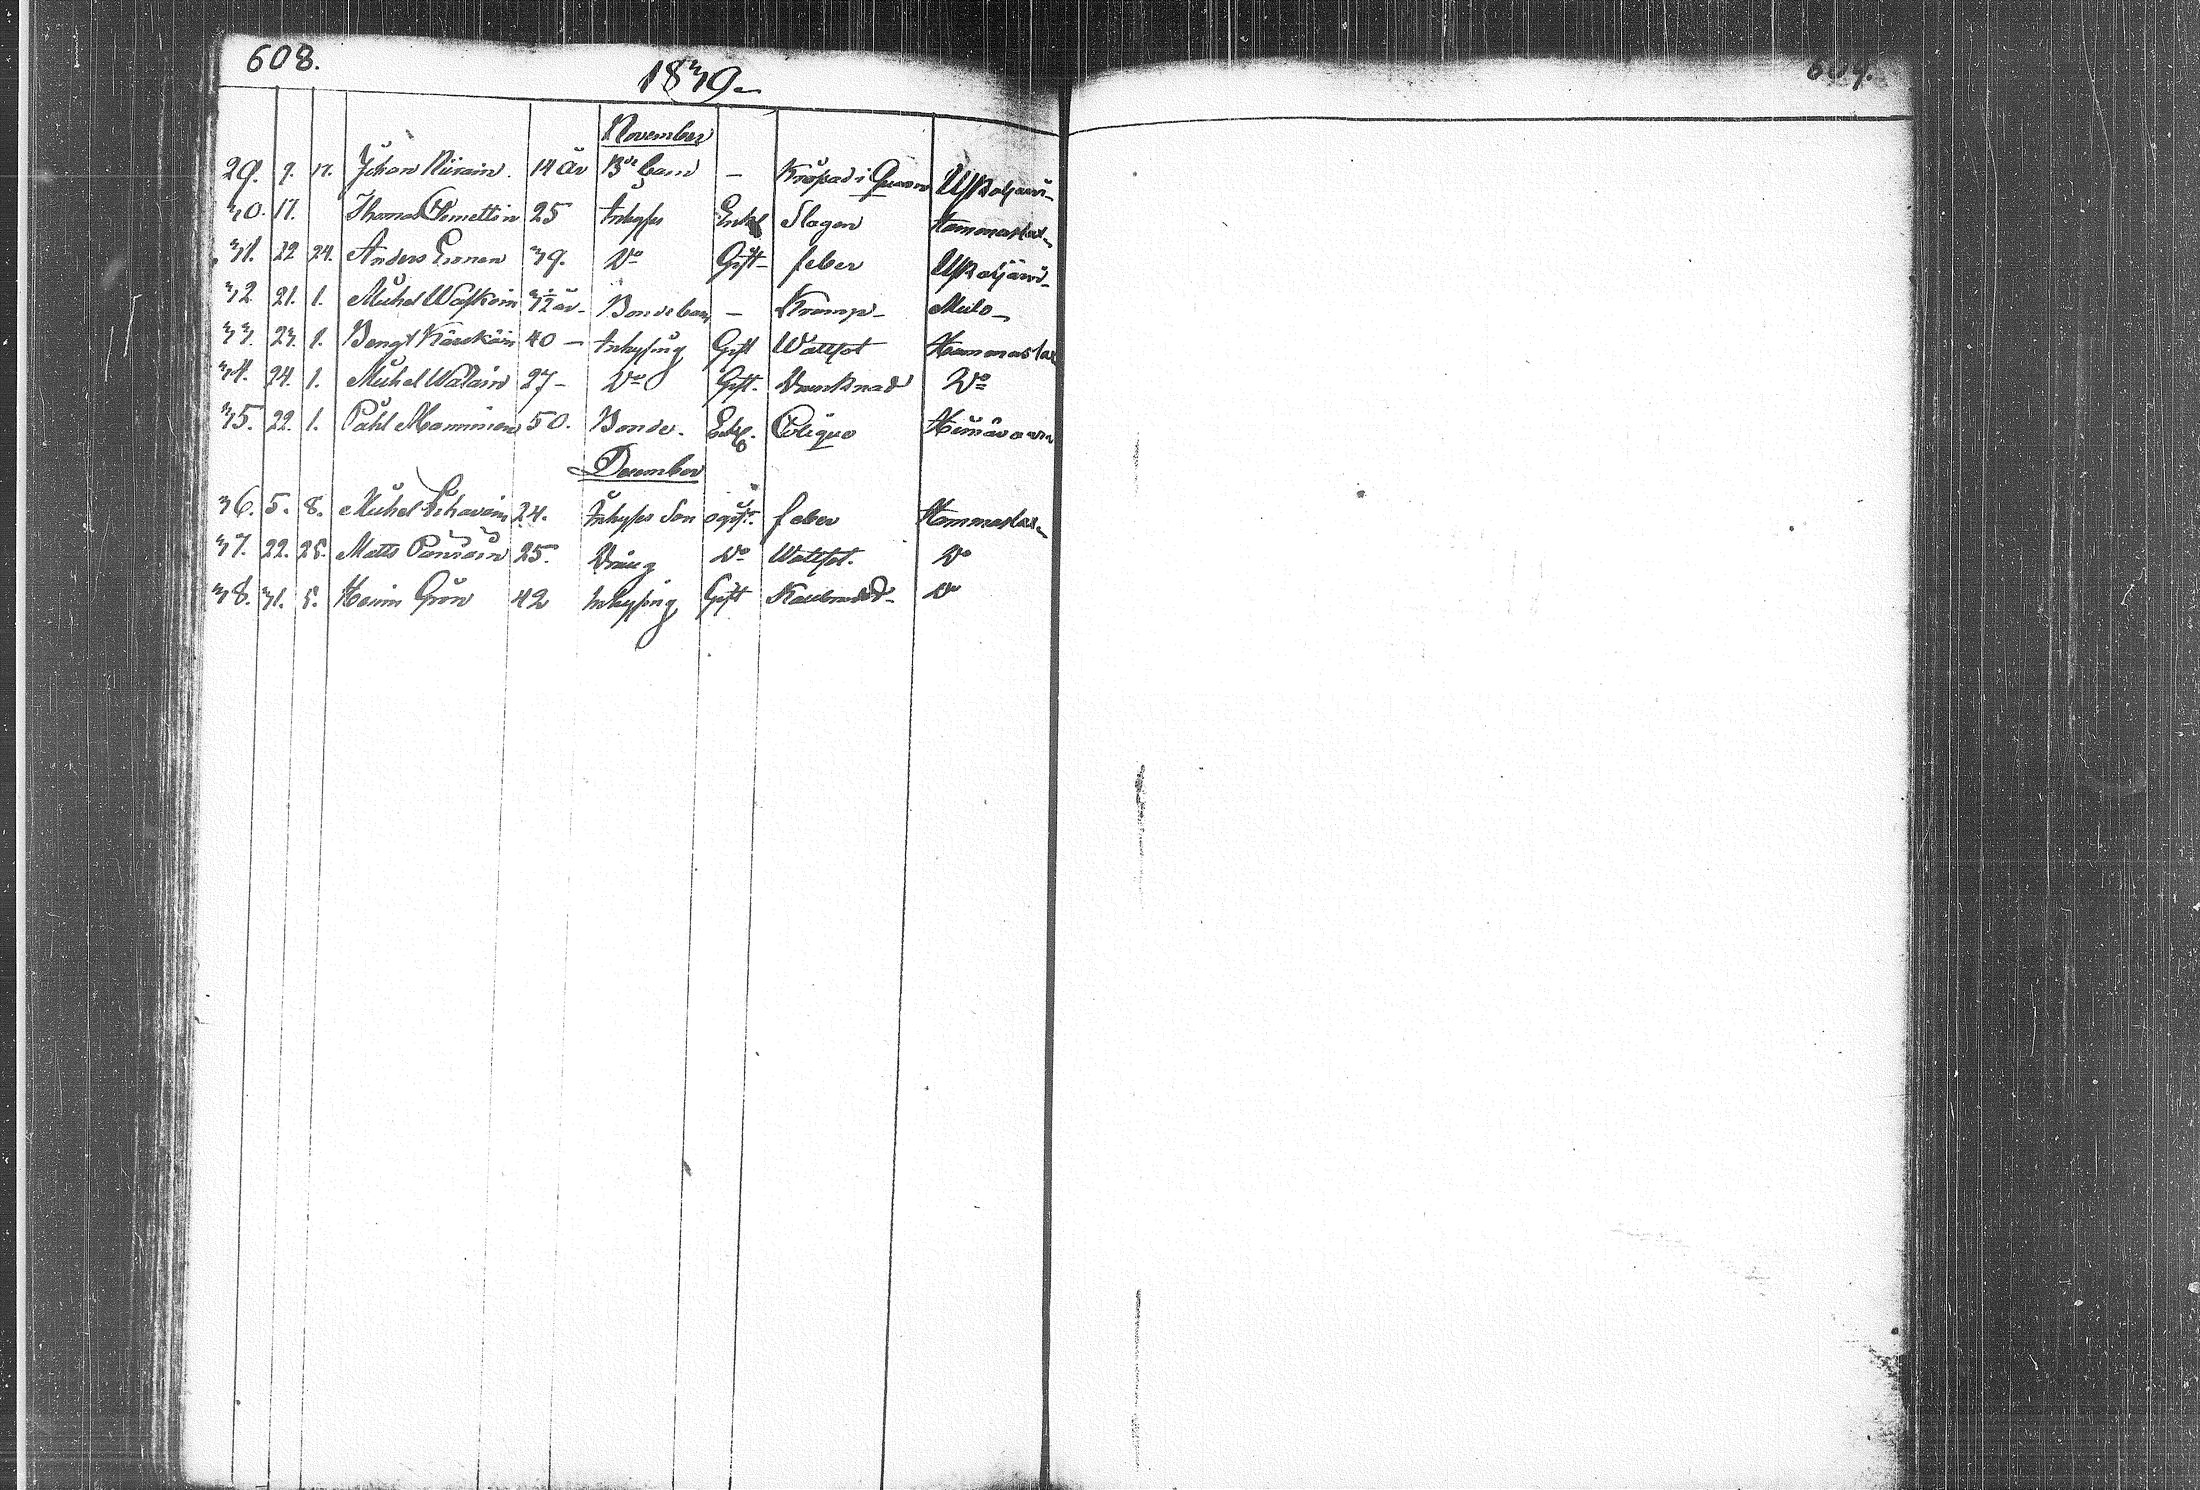 608.
1839.
609.
November
29. 9. 17. Johan Niirain. 14 år Bde barn – Kråssad i Quarn Uskaljärvi
30. 17. Thomas Clemettin 25 Inhyses Enkl Slagen Hammaslax
31. 22 24. Anders Ernnen 39. Do Gift feber Uskaljärvi
32. 21. 1. Michel Waskein 3 1/2 år Bonde barn – Kramp Mulo
33. 23. 1. Bengt Kärckäin 40 – Inhysing Gift Wattsot Hammaslax
34. 24. 1. Michel Walain 27 – Do Gift. Drunknad Do
35. 22. 1. Påhl Manninen 50. Bonde. Enkl. Colique
December
36. 5. 8. Michel 24. Inhyses Son ogift. feber Hammaslax
37. 22. 25. Matts 25. Dräng Do Wattsot. Do
38. 31. 5. Henric Grön 42 Inhysing Gift Kallbrand Do